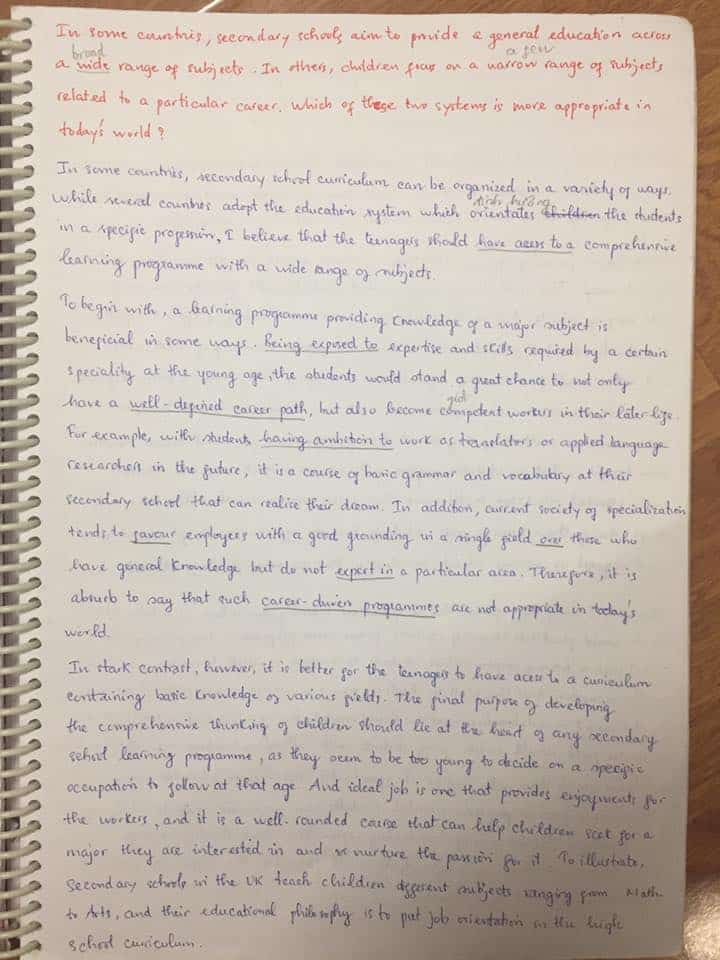 In some countries, secondary schools aim to provide a general education across
broad
a wide range of subjects. In others, children focus on a narrow range of subjects
a few
related to a particular career. Which of these two systems is more appropriate in
today's world?
In some countries, secondary school curriculum can be organized in a variety of ways.
định hướng
While several countries adopt the education system which orientates children the students
in a specific profession, I believe that the teenagers should have acess to a comprehensive
learning programme with a wide range of subjects.
To begin with, a learning programme providing knowledge of a major subject is
beneficial in some ways. Being exposed to expertise and skills required by a certain
speciality at the young age, the students would stand a great chance to not only
have a well-defined career path, but also become competent workers in their later life.
giỏi
For example, with students having ambition to work as translators or applied language
researchers in the future, it is a course of basic grammar and vocabulary at their
secondary school that can realize their dream. In addition, current society of specialization
tends to favour employers with a good grounding in a single field over those who
have general knowledge but do not expert in a particular area. Therefore, it is
absurb to say that such career-driven programmes are not appropriate in today's
world.
In stark contrast, however, it is better for the teenagers to have acess to a curiculum
containing basic knowledge of various fields. The final purpose of developing
the comprehensive thinking of children should lie at the heart of any secondary
school learning programme, as they seem to be too young to decide on a specific
occupation to follow at that age. And ideal job is one that provides enjoyments for
the workers, and it is a well-rounded course that can help children seek for a
major they are interested in and nurture the passion for it. To illustrate,
Secondary schools in the UK teach children different subjects ranging from Math
to Arts, and their educational philosophy is to put job orientation in the high
school curriculum.